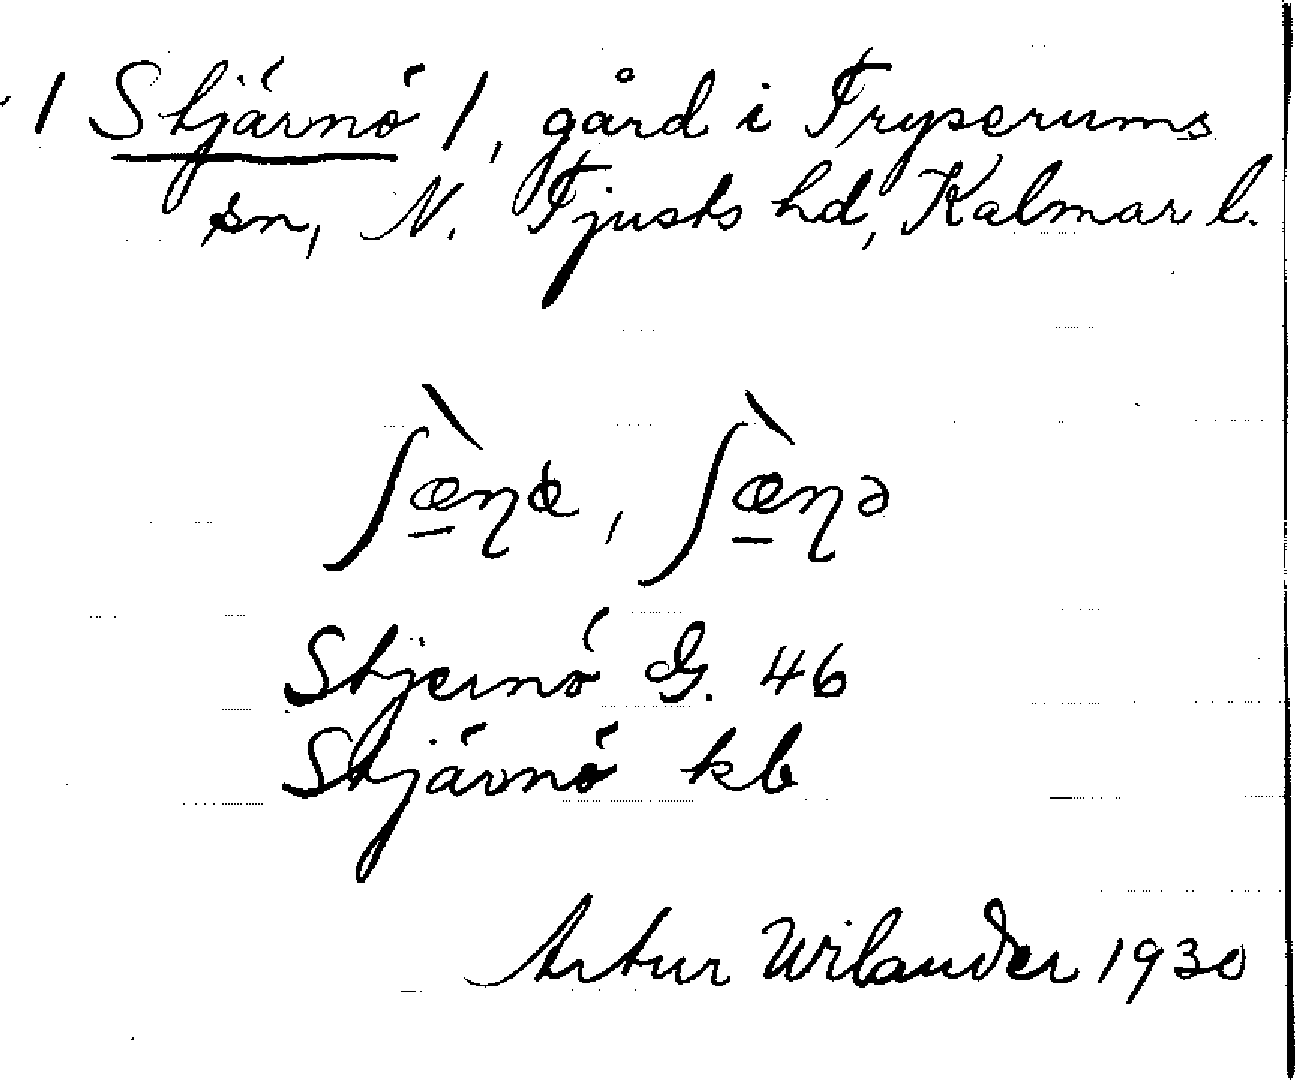 / Stjärnö /, gård i Tryserums
sn, N. Tjusts hd, Kalmar l.
ʃæ̀ɳœ, ʃæ̀ɳə
Stjernö G. 46
Stjärnö kb
Artur Wilander 1930